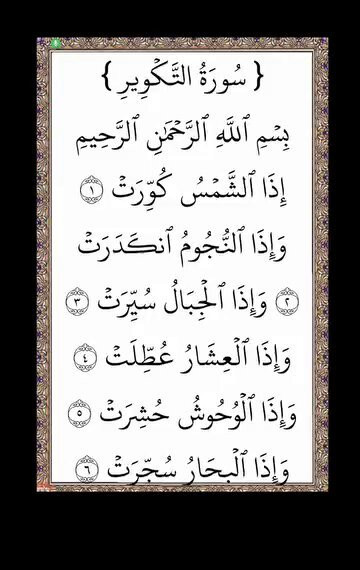 ﴿ سُورَةُ التَّكْوِيرِ ﴾
بِسْمِ ٱللَّهِ ٱلرَّحْمَٰنِ ٱلرَّحِيمِ
إِذَا ٱلشَّمْسُ كُوِّرَتْ ١
وَإِذَا ٱلنُّجُومُ ٱنكَدَرَتْ
٢ وَإِذَا ٱلْجِبَالُ سُيِّرَتْ ٣
وَإِذَا ٱلْعِشَارُ عُطِّلَتْ ٤
وَإِذَا ٱلْوُحُوشُ حُشِرَتْ ٥
وَإِذَا ٱلْبِحَارُ سُجِّرَتْ ٦